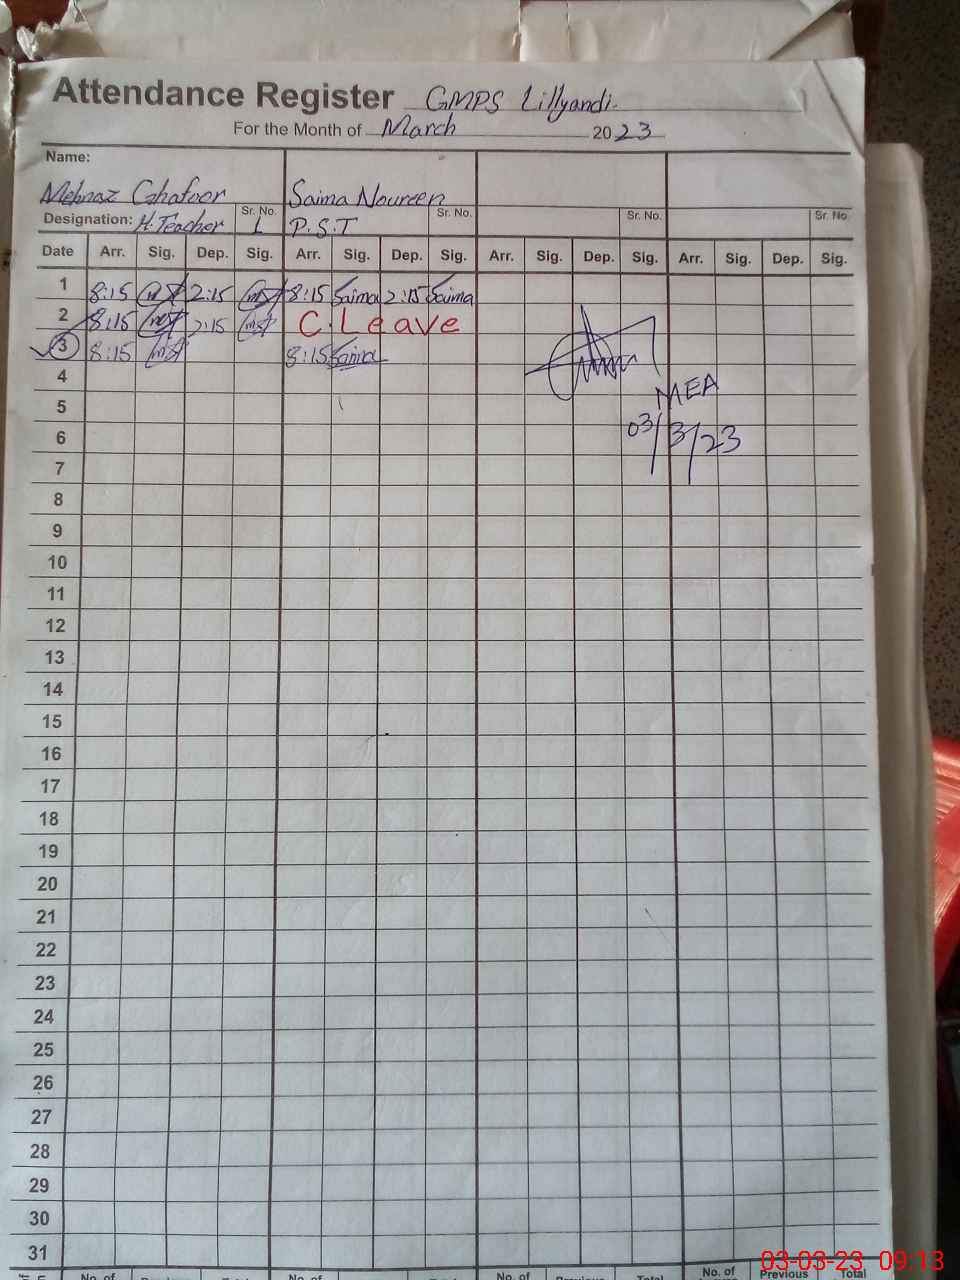 Attendance Register GMPS Lillyandi.
For the Month of March 2023
Name:
Mehnaz Ghafoor Saima Noureen
Designation: H. Teacher Sr. No. 1 P.S.T Sr. No. Sr. No. Sr. No.
Date Arr. Sig. Dep. Sig. Arr. Sig. Dep. Sig. Arr. Sig. Dep. Sig. Arr. Sig. Dep. Sig.
1 8:15 2:15 8:15 Saima 2:15 Saima
2 8:15 2:15 C. Leave
3 8:15 8:15 Saima
4
MEA
5
03/3/23
6
7
8
9
10
11
12
13
14
15
16
17
18
19
20
21
22
23
24
25
26
27
28
29
30
31
No. of Previous Total No. of Previous Total No. of Previous Total No. of Previous Total
03-03-23 09:13